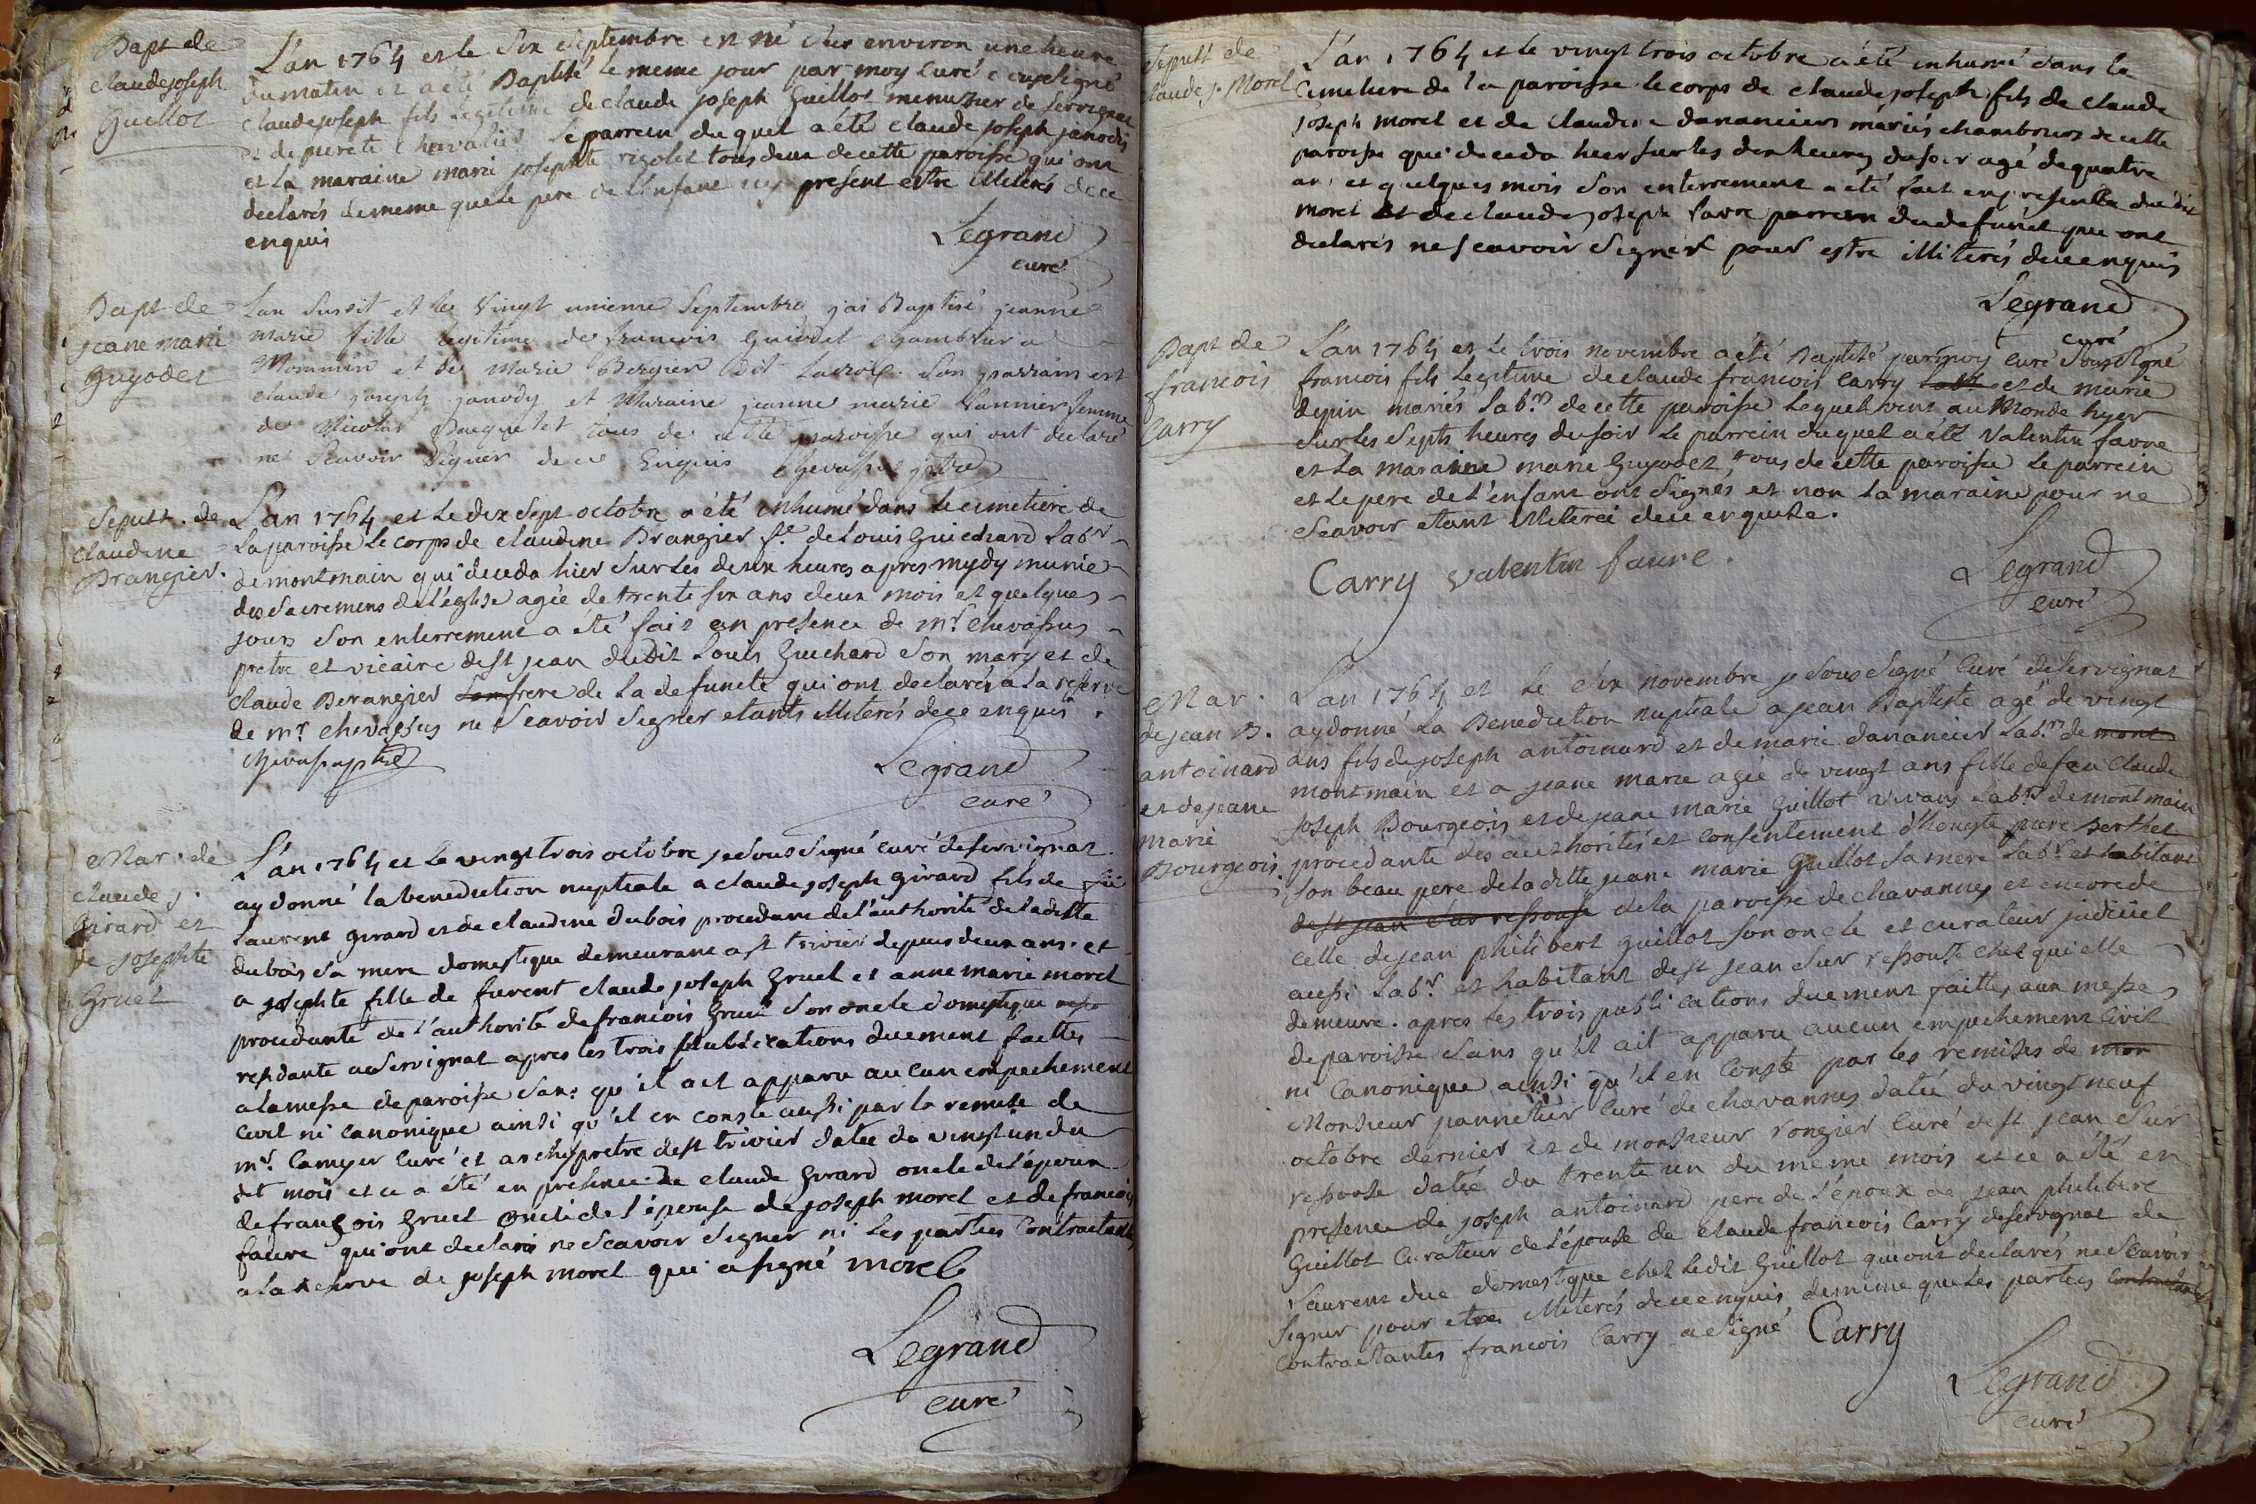 Bapt de
claude joseph
Guillot
L'an 1764 et le six septembre est né sur environ une heure
du matin et a été Baptisé le meme jour par moy curé soussigné
claude joseph fils legitime de claude joseph Guillot menuzier de servignat
et de pierrette chevalier le parrein duquel a été claude joseph janodis
et la maraine marie josephte rigolet tous deux de cette paroisse qui ont
declarés de meme que le pere de l'enfant icy present estre illiterés de ce
enquis
Legrand
curé
Bapt de
jeane marie
Guyodet
L'an susdit et le vingt unieme septembre j'ai Baptisé jeanne
marie fille legitime de francois Guiodet chambrier a
Mommin et de Marie Bergier dit Lacroix. son parrain est
claude joseph janody et Maraine jeanne marie Vannier femme
de Nicolas Paequelet tous de cette paroisse qui ont declaré
ne scavoir signer de ce Enquis Chevassus ptre
Sepult. de
claudine
Brangier.
L'an 1764 et le dix sept octobre a été inhumé dans le cimetiere de
la paroisse le corps de claudine Brangier fe. de Louis Guichard labr
de montmain qui deceda hier sur les deux heures apres mydy munie
des sacremens de l'eglise agée de trente six ans deux mois et quelques
jours son enterrement a été fait en presence de mr. chevassus
pretre et vicaire de st jean dudit Louis Guichard son mary et de
claude Berangier son frere de la defuncte qui ont declarés a la reserve
de mr. chevassus ne scavoir signer etants illiterés de ce enquis.
chevassus ptre
Legrand
curé
Mar. de
claude j.
Girard et
de josephte
Gruel
L'an 1764 et le vingt trois octobre je soussigné curé de servignat
ay donné la benediction nuptiale a claude joseph girard fils de fû
Laurent girard et de claudine dubois procedant de l'authorité de la ditte
dubois sa mere domestique demeurant a st trivier depuis deux ans. et
a josephte fille de furent claude joseph Gruel et anne marie morel
procedante de l'authorité de francois Gruel son oncle domestique
residante a servignat apres les trois publications duement faittes
a la messe de paroisse sans qu'il ait apparu aucun empechement
civil ni canonique ainsi qu'il en conste aussi par la remise de
mr. Camyer curé et archipretre de st trivier datée du vingt un du
dit mois et ce a été en présence de claude Girard oncle de l'époux
de françois Gruel oncle de l'épouse de joseph morel et de francois
faure qui ont declarés ne scavoir signer ni les parties contractantes
a la reserve de joseph morel qui a signé morel
Legrand
curé
Sepult de
claude j. Morel
L'an 1764 et le vingt trois octobre a été inhumé dans le
cimetiere de la paroisse le corps de claude joseph fils de claude
joseph morel et de claudine dananciers mariés chambriers de cette
paroisse qui deceda hier sur les dix heures du soir agé de quatre
ans et quelques mois son enterrement a été fait en presence du dit
morel et de claude joseph favre parrein du defunct qui ont
declarés ne scavoir signer pour estre illiterés de ce enquis
Legrand
curé
Bapt de
francois
Carry
L'an 1764 et le trois novembre a été Baptisé par moy curé soussigné
francois fils legitime de claude francois Carry labr et de marie
depin mariés labrs. de cette paroisse lequel vint au Monde hyer
sur les septs heures du soir le parrein duquel a été Valentin favre
et la maraine marie Guyodet, tous de cette paroisse le parrein
et le pere de l'enfant ont signés et non la maraine pour ne
scavoir etant illiterée de ce enquise.
Carry Valentin faure.
Legrand
curé
Mar.
de jean B.
antoinard
et de jeane
marie
Bourgeois.
L'an 1764 et le six novembre je soussigné curé de servignat
ay donné la Benediction nuptiale a jean Baptiste agé de vingt
ans fils de joseph antoinard et de marie dananciers labrs. de mont
montmain et a jeane marie agée de vingt ans fille de feu claude
joseph Bourgeois et de jeane marie Guillot vivans labrs de montmain
procedante des authorités et consentement d'honnete piere Berthet
son beau pere de la ditte jeane marie Guillot sa mere labr et habitant
de st jean sur ressouse de la paroisse de chavannes et encore de
celle de jean philibert guillot son oncle et curateur judiciel
aussi labr. et habitant de st jean sur ressouse chez qui elle
demeure. apres les trois publications duement faittes aux messes
de paroisse sans qu'il ait apparu aucun empechement Civil
ni Canonique ainsi qu'il en Conste par les remises de mon
Monsieur pannetier curé de chavannes datée du vingt neuf
octobre dernier Et de monsieur rongier curé de st jean sur
ressouse datée du trente un du meme mois et ce a été en
presence de joseph antoinard pere de l'époux de jean philibert
Guillot Curateur de l'épouse de claude francois Carry de servignat de
Laurent duc domestique chez ledit Guillot qui ont declarés ne scavoir
signer pour etre illiterés de ce enquis de meme que les parties contractantes
contractantes francois Carry a signé Carry
Legrand
curé